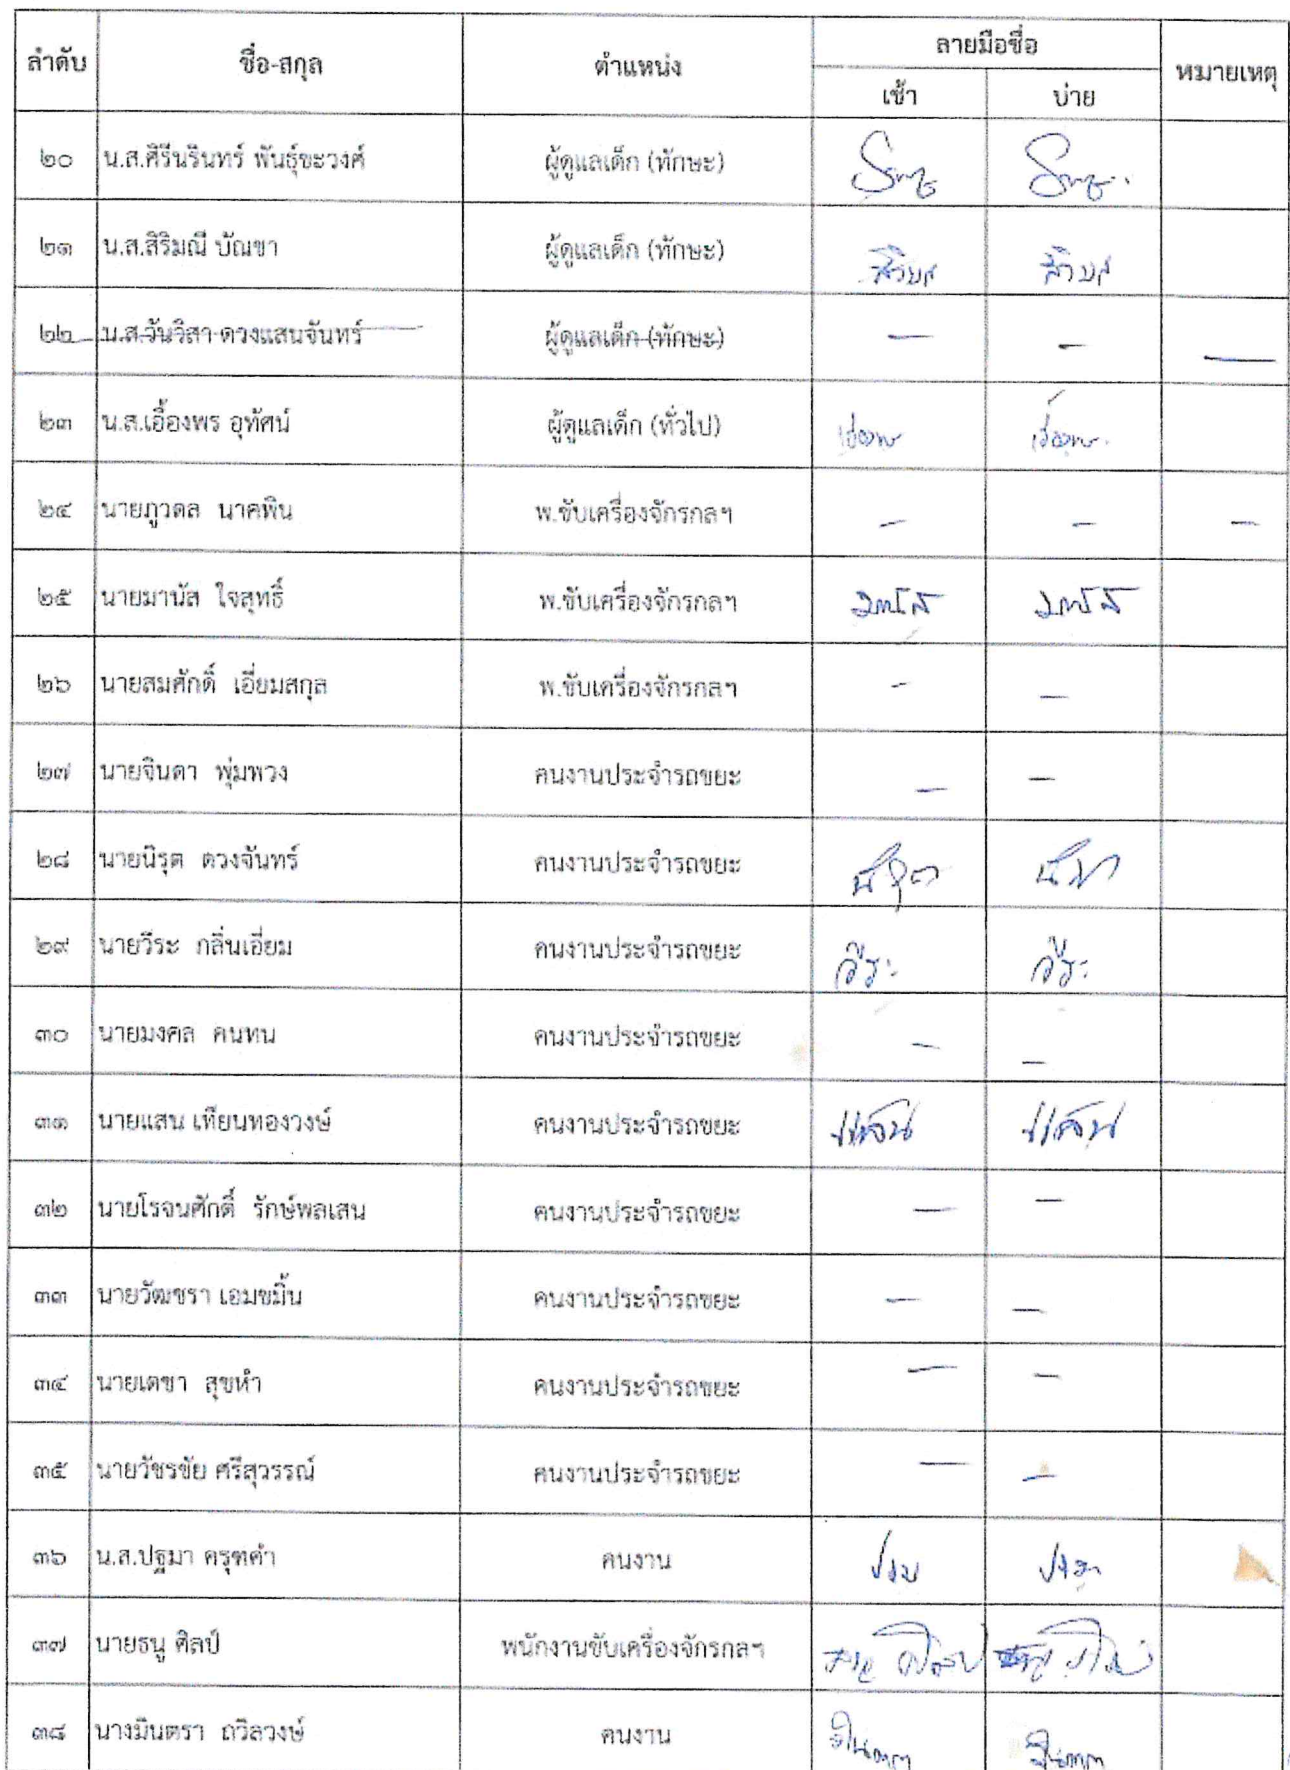 ลำดับ ชื่อ-สกุล ตำแหน่ง ลายมือชื่อ หมายเหตุ
เช้า บ่าย
๒๐ น.ส.ศิรีนรินทร์ พันธุ์ขะวงศ์ ผู้ดูแลเด็ก (ทักษะ)
๒๑ น.ส.สิริมณี บัณขา ผู้ดูแลเด็ก (ทักษะ)
๒๒ น.ส.วันวิสา ดวงแสนจันทร์ ผู้ดูแลเด็ก (ทักษะ) — — —
๒๓ น.ส.เอื้องพร อุทัศน์ ผู้ดูแลเด็ก (ทั่วไป) เอื้องพร เอื้องพร
๒๔ นายภูวดล นาคพิน พ.ขับเครื่องจักรกลฯ — — —
๒๕ นายมานัส ใจสุทธิ์ พ.ขับเครื่องจักรกลฯ มานัส มานัส
๒๖ นายสมศักดิ์ เอี่ยมสกุล พ.ขับเครื่องจักรกลฯ - —
๒๗ นายจินดา พุ่มพวง คนงานประจำรถขยะ — —
๒๘ นายนิรุต ดวงจันทร์ คนงานประจำรถขยะ นิรุต
๒๙ นายวีระ กลิ่นเอี่ยม คนงานประจำรถขยะ วีระ วีระ
๓๐ นายมงคล คนทน คนงานประจำรถขยะ — —
๓๑ นายแสน เทียนทองวงษ์ คนงานประจำรถขยะ แสน แสน
๓๒ นายโรจนศักดิ์ รักษ์พลเสน คนงานประจำรถขยะ — —
๓๓ นายวัฒชรา เอมขมิ้น คนงานประจำรถขยะ — —
๓๔ นายเดชา สุขหำ คนงานประจำรถขยะ — —
๓๕ นายวัชรชัย ศรีสุวรรณ์ คนงานประจำรถขยะ — —
๓๖ น.ส.ปฐมา ครุฑคำ คนงาน
๓๗ นายธนู ศิลป์ พนักงานขับเครื่องจักรกลฯ
๓๘ นางมินตรา ถวิลวงษ์ คนงาน มินตรา มินตรา